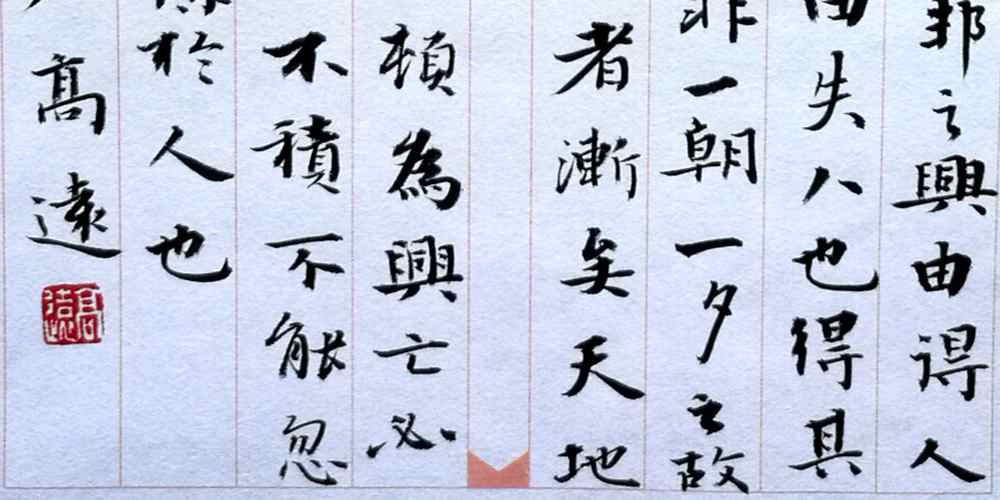 邦之興由得人
由失人也得其
非一朝一夕之故
者漸矣天地
頓為興亡必
不積不能忽
於人也
高遠
高遠